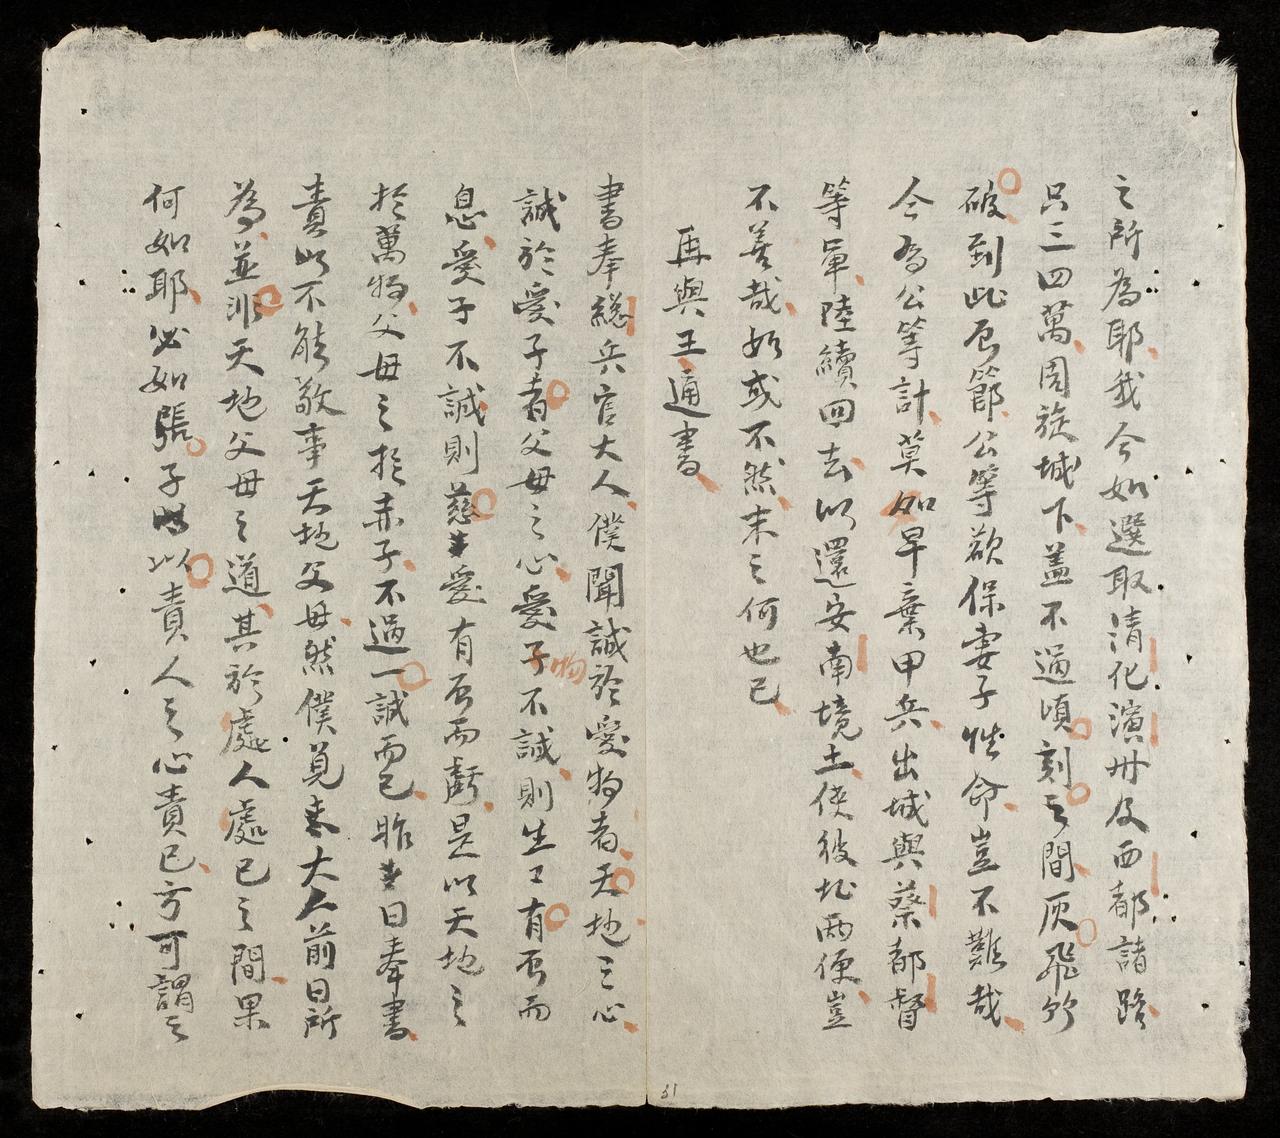 之所為耶我今如選取清化演州及西都諸路
只三四萬周旋城下盖不過頃刻之間灰飛竹
破到此辰節公等欲保妻子性命豈不難哉
今為公等計莫如早棄甲兵出城與蔡都督
等軍陸續回去以還安南境土使彼此两便豈
不善哉如或不然末之何也已
再與王通書
書奉総兵官大人僕聞誠於愛物者天地之心
誠於愛子者父母之心愛物不誠則生工有辰而
息愛子不誠則慈愛有辰而虧是以天地之
於萬物父母之於赤子不過一誠而已昨日奉書
責以不能敬事天地父母然僕見大人前日所
為並非天地父母之道其於處人處己之間果
何如耶必如張子以責人之心責己方可謂之
31